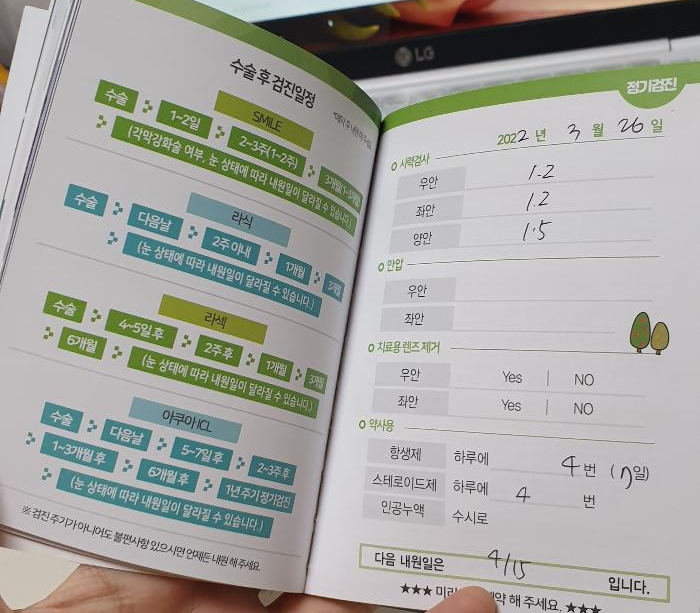 LG
수술 후 검진일정
SMILE
수술 1~2일 2~3주(1~2주) 3개월(1~3개월)
(각막강화술 여부, 눈 상태에 따라 내원일이 달라질 수 있습니다.)
라식
수술 다음날 2주 이내 1개월 3개월
(눈 상태에 따라 내원일이 달라질 수 있습니다.)
라섹
수술 4~5일 후 2주 후 1개월 3개월
6개월 (눈 상태에 따라 내원일이 달라질 수 있습니다.)
아쿠아 ICL
수술 다음날 5~7일 후 2~3주 후
1~3개월 후 6개월 후 1년 주기 정기검진
(눈 상태에 따라 내원일이 달라질 수 있습니다.)
※ 검진 주기가 아니어도 불편사항 있으시면 언제든 내원 해 주세요.
정기검진
2022 년 3 월 26 일
시력검사
우안 1.2
좌안 1.2
양안 1.5
안압
우안
좌안
치료용 렌즈 제거
우안 Yes | NO
좌안 Yes | NO
약사용
항생제 하루에 4 번 (7일)
스테로이드제 하루에 4 번
인공누액 수시로
다음 내원일은 4/15 입니다.
★★★ 미리 약 해 주세요. ★★★